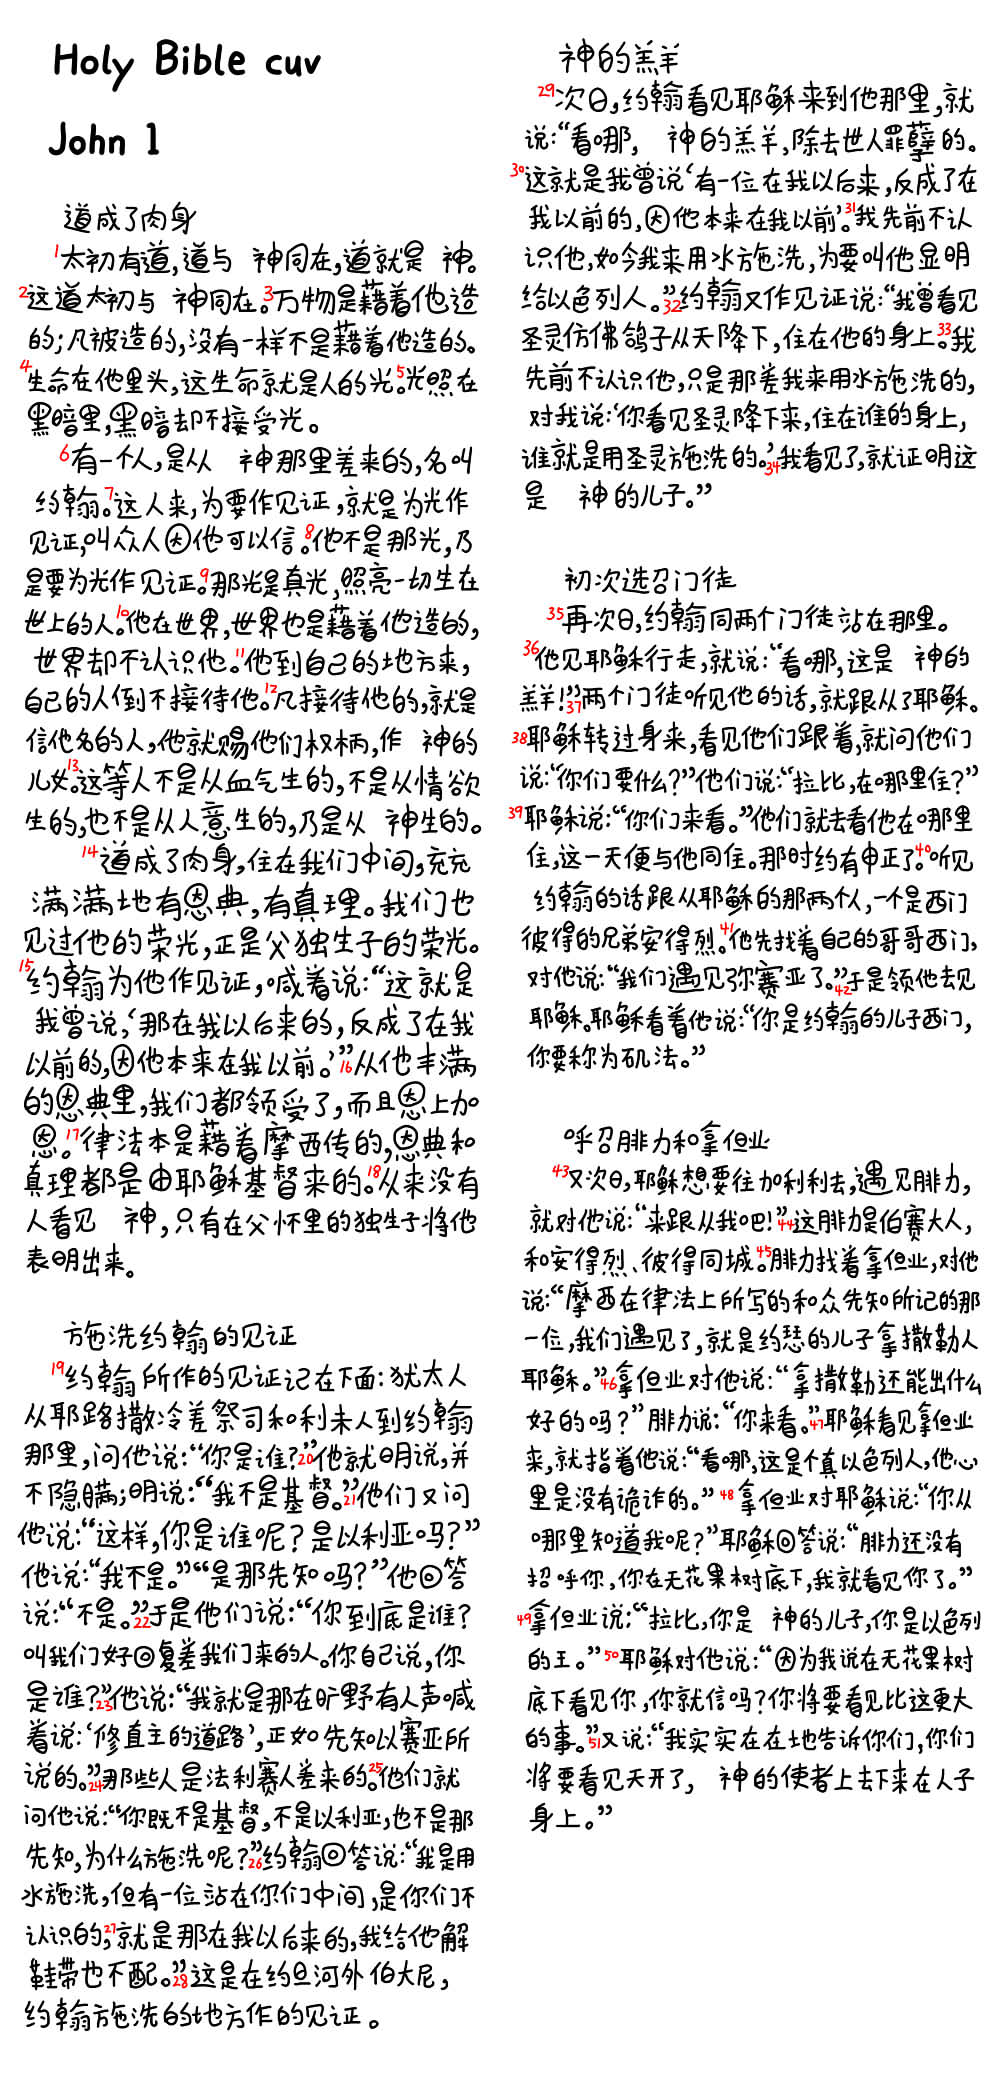 Holy Bible cuv
John 1
道成了肉身
1太初有道,道与 神同在,道就是 神。
2这道太初与 神同在。3万物是藉着他造
的;凡被造的,没有一样不是藉着他造的。
4生命在他里头,这生命就是人的光。5光照在
黑暗里,黑暗却不接受光。
6有一个人,是从 神那里差来的,名叫
约翰。7这人来,为要作见证,就是为光作
见证,叫众人因他可以信。8他不是那光,乃
是要为光作见证。9那光是真光,照亮一切生在
世上的人。10他在世界,世界也是藉着他造的,
世界却不认识他。11他到自己的地方来,
自己的人倒不接待他。12凡接待他的,就是
信他名的人,他就赐他们权柄,作 神的
儿女。13这等人不是从血气生的,不是从情欲
生的,也不是从人意生的,乃是从 神生的。
14道成了肉身,住在我们中间,充充
满满地有恩典,有真理。我们也
见过他的荣光,正是父独生子的荣光。
15约翰为他作见证,喊着说:“这就是
我曾说,‘那在我以后来的,反成了在我
以前的,因他本来在我以前。’”16从他丰满
的恩典里,我们都领受了,而且恩上加
恩。17律法本是藉着摩西传的,恩典和
真理都是由耶稣基督来的。18从来没有
人看见 神,只有在父怀里的独生子将他
表明出来。
施洗约翰的见证
19约翰所作的见证记在下面:犹太人
从耶路撒冷差祭司和利未人到约翰
那里,问他说:“你是谁?”20他就明说,并
不隐瞒;明说:“我不是基督。”21他们又问
他说:“这样,你是谁呢?是以利亚吗?”
他说:“我不是。”“是那先知吗?”他回答
说:“不是。”22于是他们说:“你到底是谁?
叫我们好回复差我们来的人。你自己说,你
是谁?”23他说:“我就是那在旷野有人声喊
着说:‘修直主的道路’,正如先知以赛亚所
说的。”24那些人是法利赛人差来的。25他们就
问他说:“你既不是基督,不是以利亚,也不是那
先知,为什么施洗呢?”26约翰回答说:“我是用
水施洗,但有一位站在你们中间,是你们不
认识的,27就是那在我以后来的,我给他解
鞋带也不配。”28这是在约旦河外伯大尼,
约翰施洗的地方作的见证。
神的羔羊
29次日,约翰看见耶稣来到他那里,就
说:“看哪, 神的羔羊,除去世人罪孽的。
30这就是我曾说‘有一位在我以后来,反成了在
我以前的,因他本来在我以前’。31我先前不认
识他,如今我来用水施洗,为要叫他显明
给以色列人。”32约翰又作见证说:“我曾看见
圣灵仿佛鸽子从天降下,住在他的身上。33我
先前不认识他,只是那差我来用水施洗的,
对我说:‘你看见圣灵降下来,住在谁的身上,
谁就是用圣灵施洗的。’34我看见了,就证明这
是 神的儿子。”
初次选召门徒
35再次日,约翰同两个门徒站在那里。
36他见耶稣行走,就说:“看哪,这是 神的
羔羊!”37两个门徒听见他的话,就跟从了耶稣。
38耶稣转过身来,看见他们跟着,就问他们
说:“你们要什么?”他们说:“拉比,在哪里住?”
39耶稣说:“你们来看。”他们就去看他在哪里
住,这一天便与他同住。那时约有申正了。40听见
约翰的话跟从耶稣的那两个人,一个是西门
彼得的兄弟安得烈。41他先找着自己的哥哥西门,
对他说:“我们遇见弥赛亚了。”42于是领他去见
耶稣。耶稣看着他说:“你是约翰的儿子西门,
你要称为矶法。”
呼召腓力和拿但业
43又次日,耶稣想要往加利利去,遇见腓力,
就对他说:“来跟从我吧!”44这腓力是伯赛大人,
和安得烈、彼得同城。45腓力找着拿但业,对他
说:“摩西在律法上所写的和众先知所记的那
一位,我们遇见了,就是约瑟的儿子拿撒勒人
耶稣。”46拿但业对他说:“拿撒勒还能出什么
好的吗?”腓力说:“你来看。”47耶稣看见拿但业
来,就指着他说:“看哪,这是个真以色列人,他心
里是没有诡诈的。”48拿但业对耶稣说:“你从
哪里知道我呢?”耶稣回答说:“腓力还没有
招呼你,你在无花果树底下,我就看见你了。”
49拿但业说:“拉比,你是 神的儿子,你是以色列
的王。”50耶稣对他说:“因为我说在无花果树
底下看见你,你就信吗?你将要看见比这更大
的事。”51又说:“我实实在在地告诉你们,你们
将要看见天开了, 神的使者上去下来在人子
身上。”